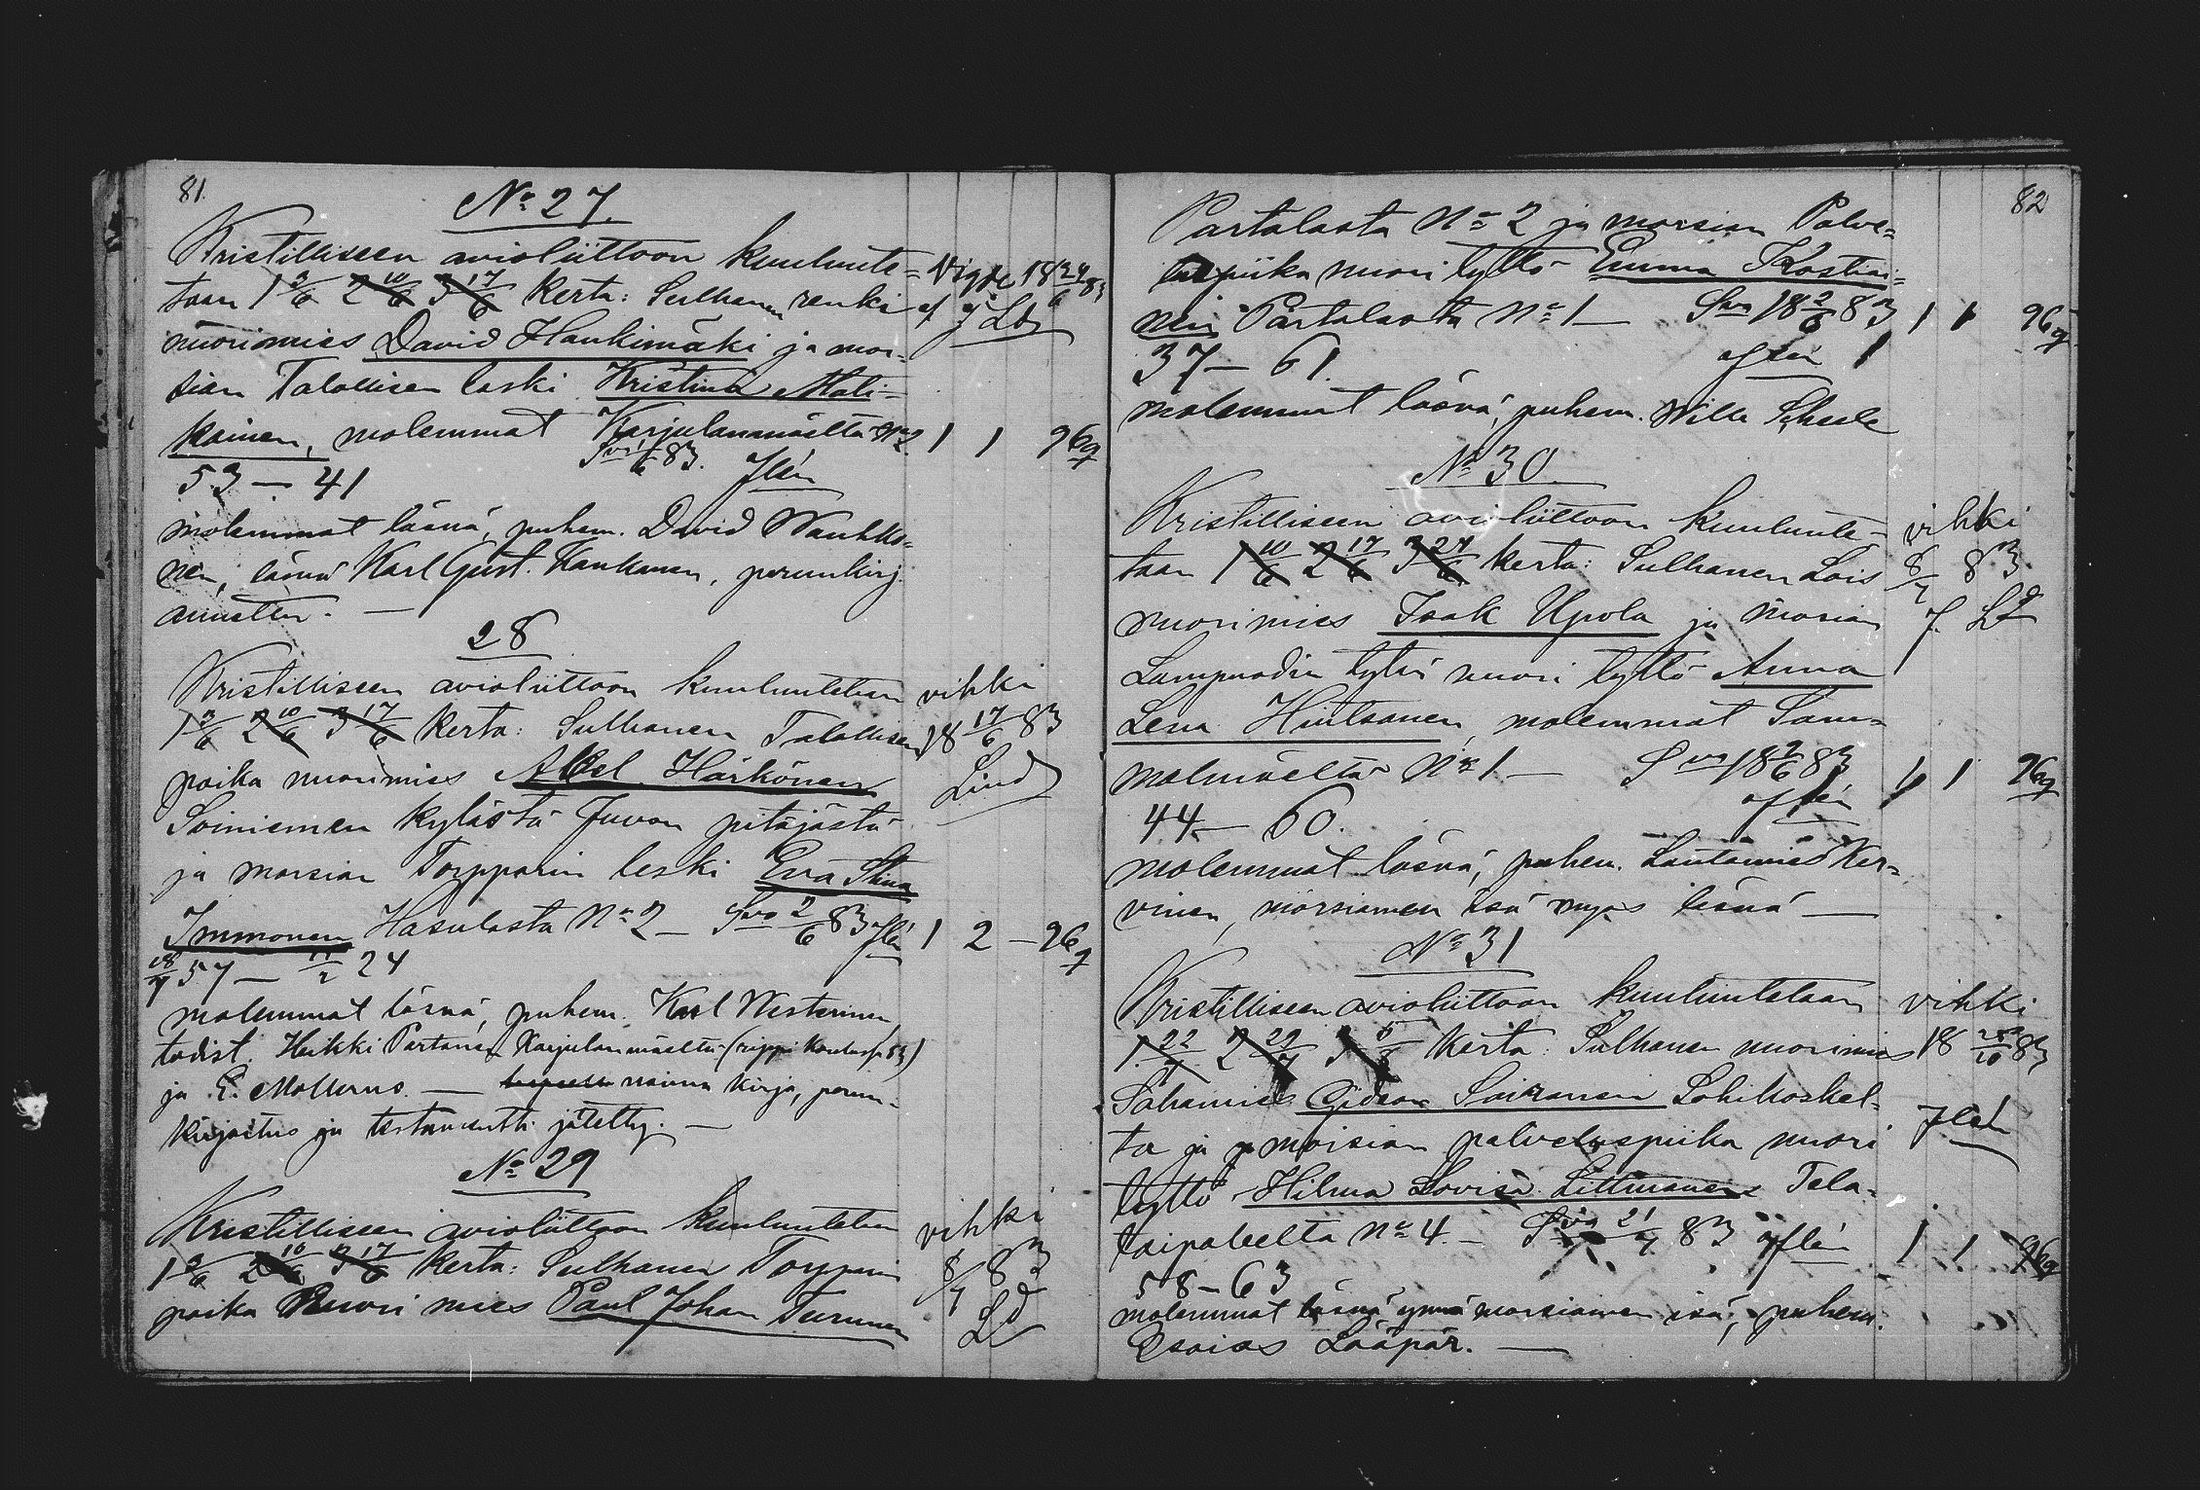 81.
No 27.
Kristilliseen avioliittoon kuulute=
taan 1 3/6 2 10/6 3 17/6 kerta: Sulhanen renki
nuorimies David Haukimäki ja mor-
sian Talollisen leski Kristina Mati-
kainen, molemmat Karjulanmäeltä No 2 1 1 96
53 — 41
molemmat läsnä, puhem. David Vauhko-
nen, läsnä Karl Gust. Kaukanen, perunkirj.
annettu. —
28
Kristilliseen avioliittoon kuulutetaan vihki
1 3/6 2 10/6 3 17/6 kerta: Sulhanen Talollisen 18 17/6 83
poika nuorimies Abel Härkönen Lind
Soiniemen kylästä Juvan pitäjästä
ja morsian Torpparin leski Eva Stina
Immonen Hasulasta No 2 — 2/6 83 1 2 — 96
18/7 57 — 11/2 24
molemmat läsnä, puhem. Karl Westerinen
todist. Heikki Partanen Karjulanmäeltä
ja E. Mollerus. — naima kirja, perun-
kirjoitus ja testamentti jätetty. —
No 29
Kristilliseen avioliittoon kuulutetaan vihki
1 3/6 2 10/6 3 17/6 kerta: Sulhanen Torpparin 8/7 83
poika Nuori mies Paul Johan Turunen Ld
82
Partalasta No 2 ja morsian Palve=
luspiika nuori tyttö Emma Kostiai=
nen Partalasta No 1 — 18 2/6 83 1 1 96
37 — 61.
molemmat läsnä, puhem. Wille Scheele
No 30
Kristilliseen avioliittoon kuulute= vihki
taan 1 10/6 2 17/6 3 24/6 kerta: Sulhanen Lois 8/7 83
nuorimies Isak Upola ja morsian J. Ld
Lampuodin tytär nuori tyttö Anna
Lena Hintsanen, molemmat Sam=
malmäeltä No 1 — 18 2/6 83 1 1 96
44 — 60.
molemmat läsnä, puhem. Lautamies Ker=
vinen, morsiamen isä myös läsnä —
No 31
Kristilliseen avioliittoon kuulutetaan vihki
1 22/7 2 29/7 3 5/8 kerta: Sulhanen nuorimies 18 28/10 83
Sahamies Gideon Soiranen Lohikoskel-
ta ja morsian palveluspiika nuori
tyttö Hilma Lovisa Littmanen Tela-
taipaleelta No 4. — 21/7 83 1 1 96
58 — 63
molemmat läsnä, ynnä morsiamen isä, puhem.
Esaias Lääpär. —